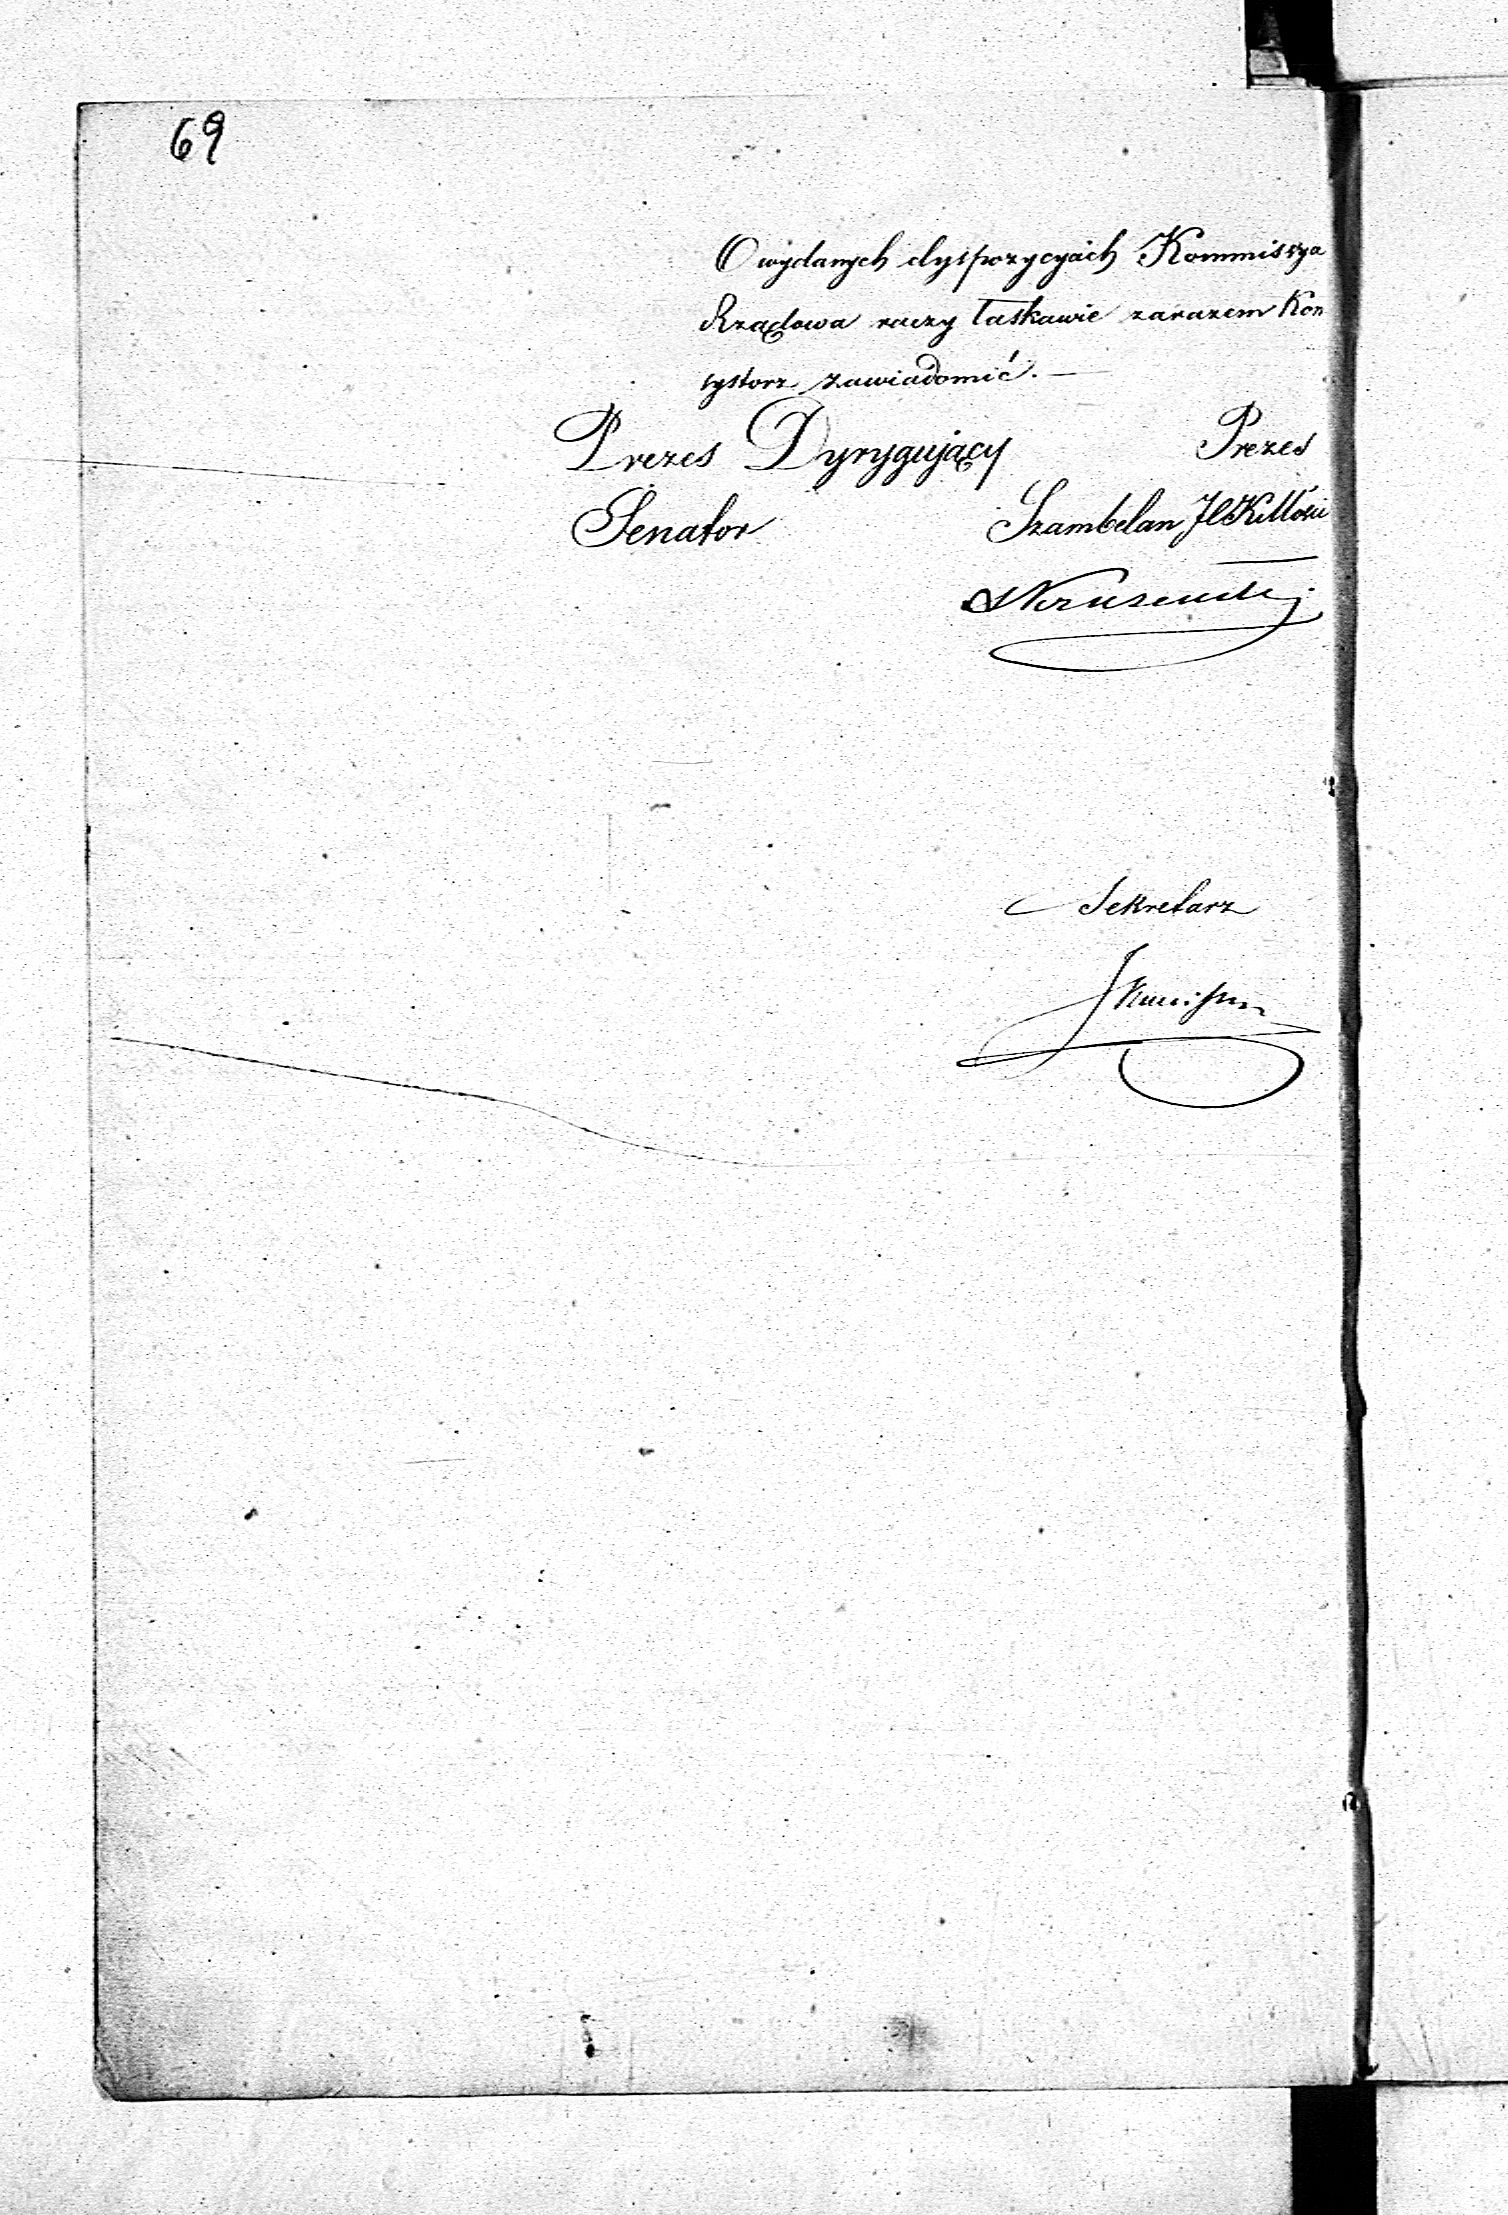 69
O wydanych dyspozycyach Kommissya
Rządowa raczy łaskawie zarazem Kon
systorz zawiadomić. —
Prezes Dyrygujący Prezes
Senator Szambelan
Sekretarz